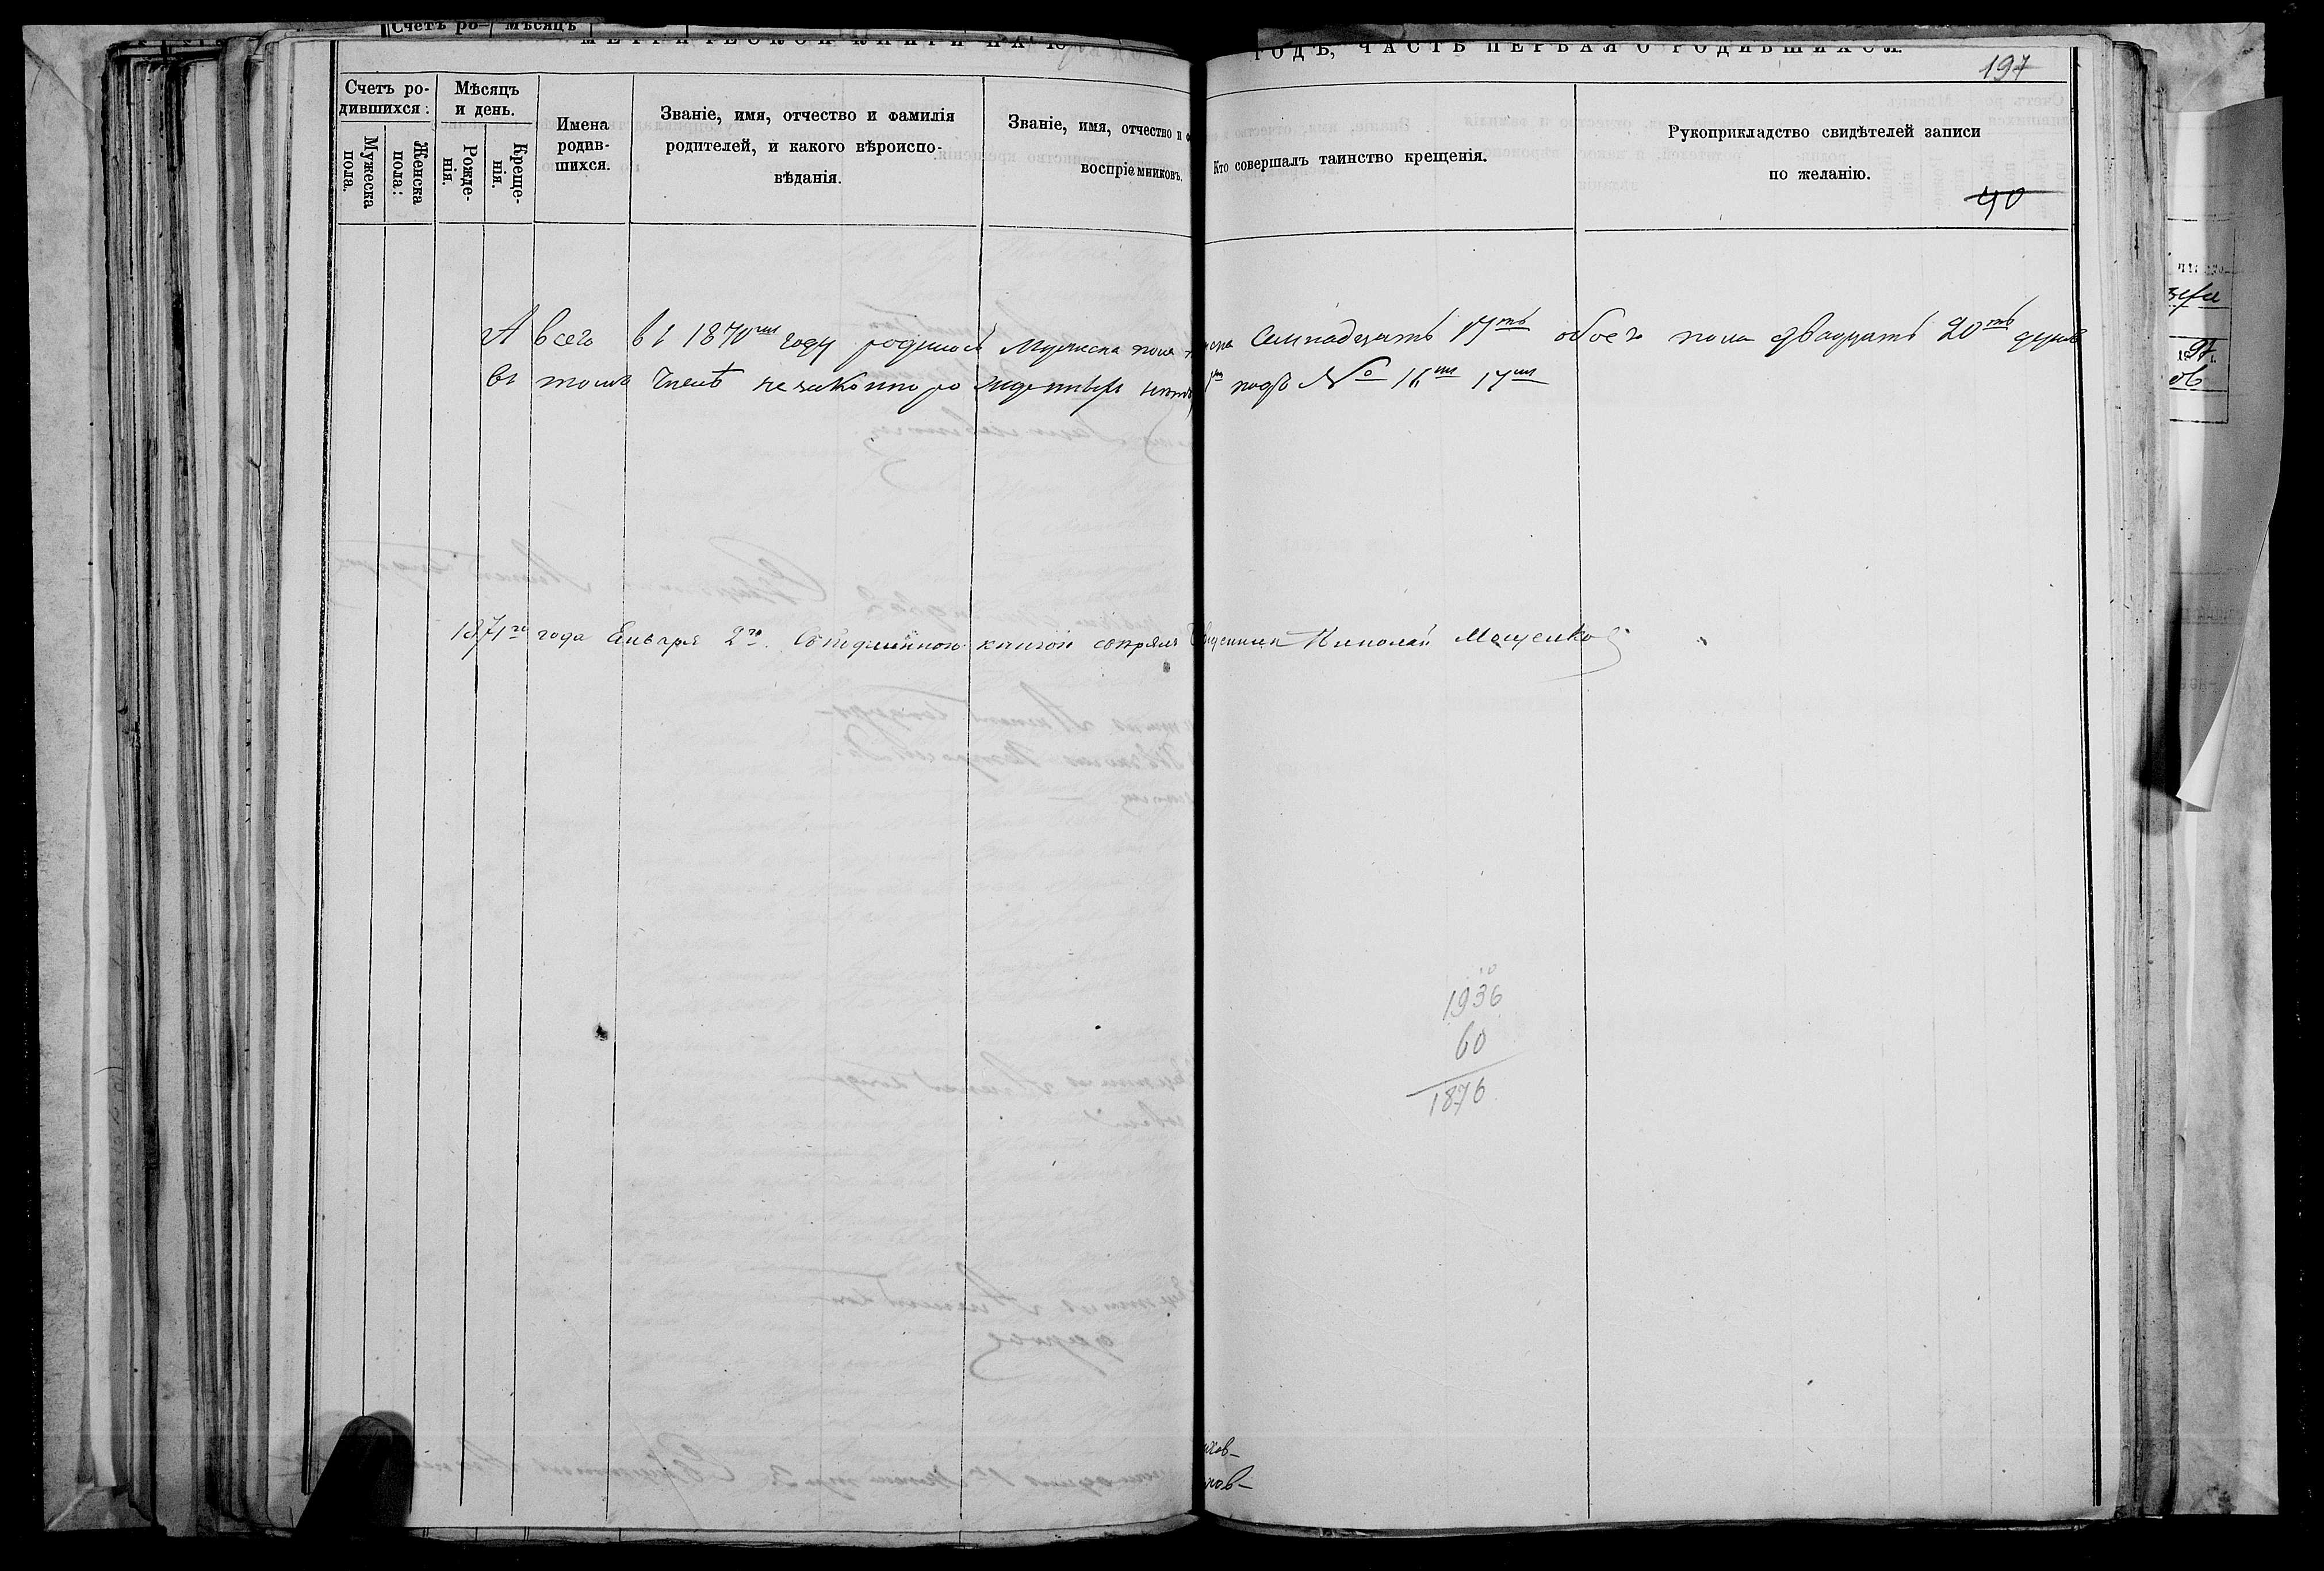 Счетъ ро- Мѣсяцъ
МЕТРИЧЕСКОЙ КНИГИ НА 18
ГОДЪ, ЧАСТЬ ПЕРВАЯ О РОДИВШИХСЯ.
197
Счетъ ро-
дившихся:
Мужеска
пола.
Женска
пола:
Мѣсяцъ
и день.
Рожде-
нія.
Креще-
нія.
Имена
родив-
шихся.
Званіе, имя, отчество и фамилія
родителей, и какого вѣроиспо-
вѣданія.
Званіе, имя, отчество и
воспріемниковъ.
Кто совершалъ таинство крещенія.
Рукоприкладство свидѣтелей записи
по желанію.
40
А всего въ 1870мъ году родилось Мужеска пола семнадцать 17ть обоего пола двадцать 20ть душъ
Въ томъ числѣ незаконно рожденныхъ подъ № 16мъ 17мъ
1871го года Января 2го. книгою Священникъ Николай Мощенко
1936
60
1876
ков-
ков-